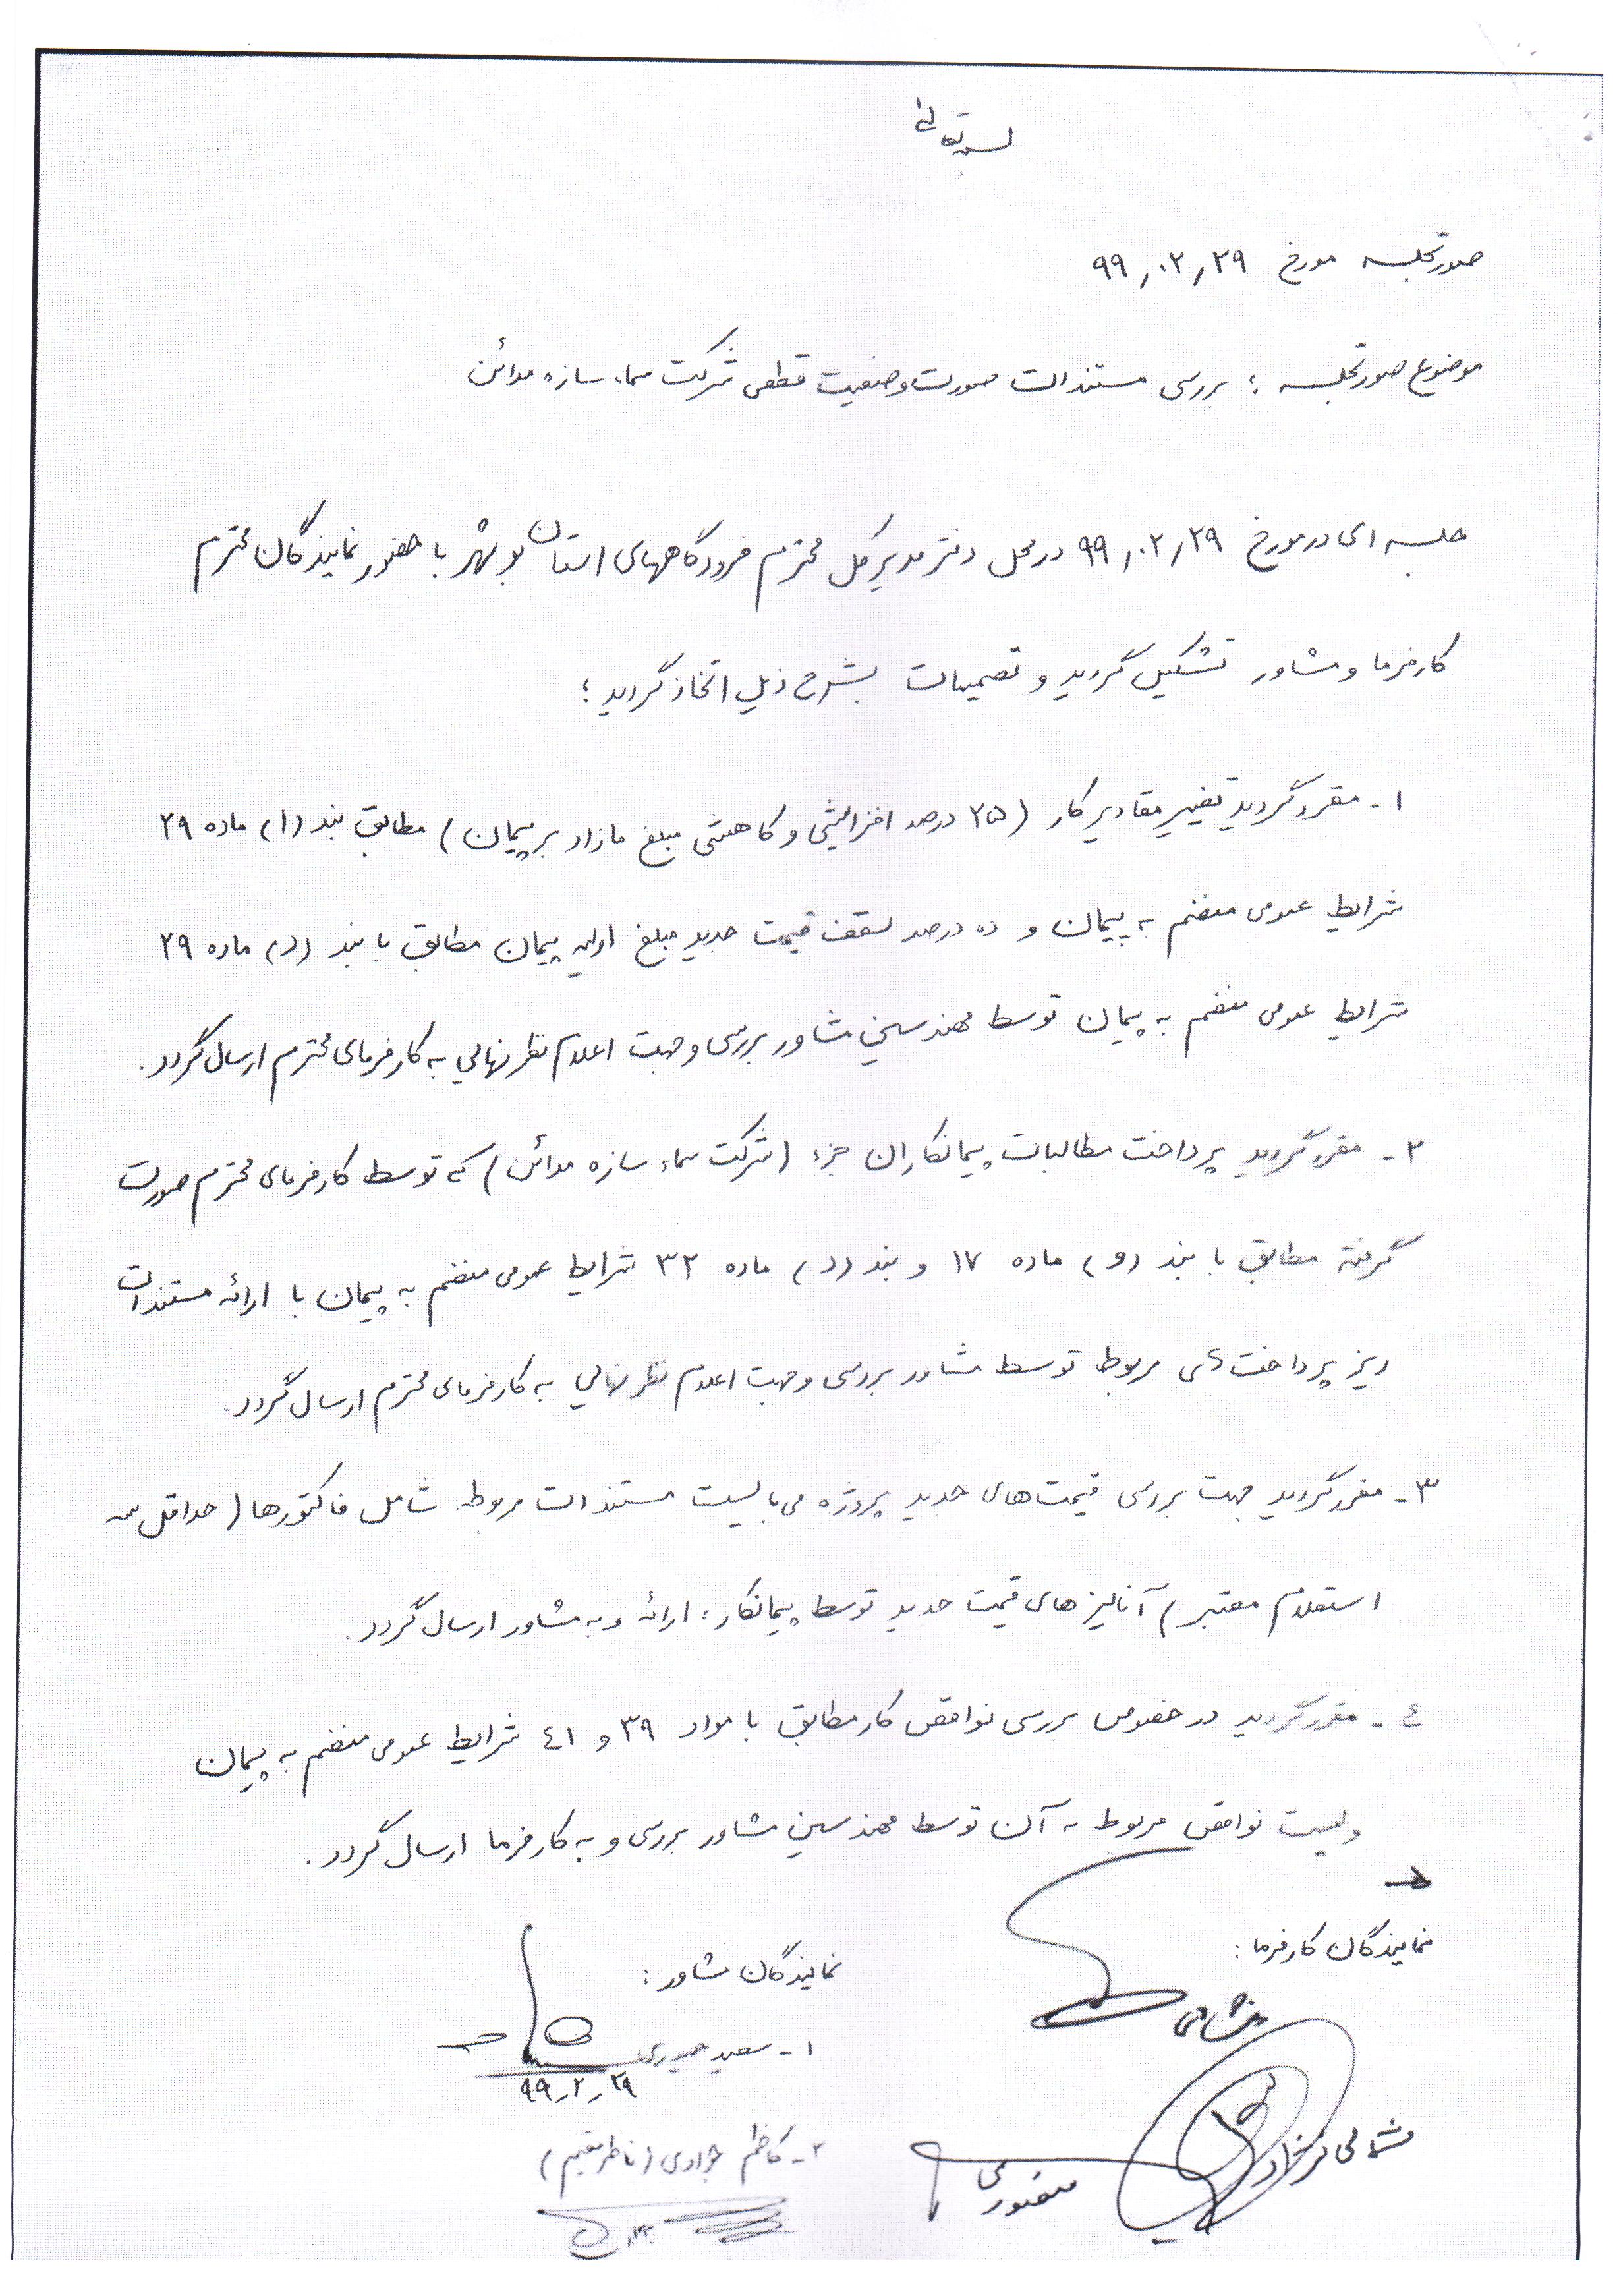 بسمه تعالی
صورتجلسه مورخ ۹۹٫۰۲٫۲۹
موضوع صورتجلسه : بررسی مستندات صورت وضعیت قطعی شرکت سماء سازه مدائن
جلسه ای در مورخ ۹۹٫۰۲٫۲۹ در محل دفتر مدیر کل محترم فرودگاههای استان بوشهر با حضور نمایندگان محترم
کارفرما و مشاور تشکیل گردید و تصمیمات بشرح ذیل اتخاذ گردید :
۱- مقرر گردید تغییر مقادیر کار (۲۵ درصد افزایشی و کاهشی مبلغ مازاد بر پیمان) مطابق بند (۱) ماده ۲۹
شرایط عمومی منضم به پیمان و ده درصد سقف قیمت جدید مبلغ اولیه پیمان مطابق با بند (د) ماده ۲۹
شرایط عمومی منضم به پیمان توسط مهندسین مشاور بررسی و جهت اعلام نظر نهایی به کارفرمای محترم ارسال گردد.
۲- مقرر گردید پرداخت مطالبات پیمانکاران جزء (شرکت سماء سازه مدائن) که توسط کارفرمای محترم صورت
گرفته مطابق با بند (و) ماده ۱۷ و بند (د) ماده ۳۲ شرایط عمومی منضم به پیمان با ارائه مستندات
ریز پرداخت های مربوط توسط مشاور بررسی و جهت اعلام نظر نهایی به کارفرمای محترم ارسال گردد.
۳- مقرر گردید جهت بررسی قیمت های جدید پروژه می بایست مستندات مربوطه شامل فاکتورها (حداقل سه
استعلام معتبر) آنالیزهای قیمت جدید توسط پیمانکار، ارائه و به مشاور ارسال گردد.
٤- مقرر گردید در خصوص بررسی نواقص کار مطابق با مواد ۳۹ و ٤۱ شرایط عمومی منضم به پیمان
و لیست نواقص مربوط به آن توسط مهندسین مشاور بررسی و به کارفرما ارسال گردد.
نمایندگان کارفرما:
نمایندگان مشاور :
۱- سعید حیدری
۹۹٫۲٫۲۹
شمالی نژاد
منصوری
۲- کاظم جوادی (ناظر مقیم)